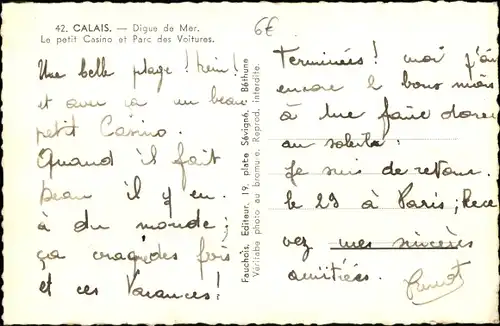 42. CALAIS. — Digue de Mer.
Le petit Casino et Parc des Voitures.
6€
Une belle plage ! Hein !
et avec ça un beau
petit Casino.
Quand il fait
beau il y en
a du monde ;
ça craque des fois
et ces Vacances !
Fauchois, Editeur, 19, place Sévigné, Béthune
Véritable photo au bromure. Reprod. interdite.
Terminées ! moi j'ai
encore 2 bons mois
à me faire dorer
au soleil !
Je suis de retour
le 29 à Paris ; Rece
vez mes sincères
amitiées.